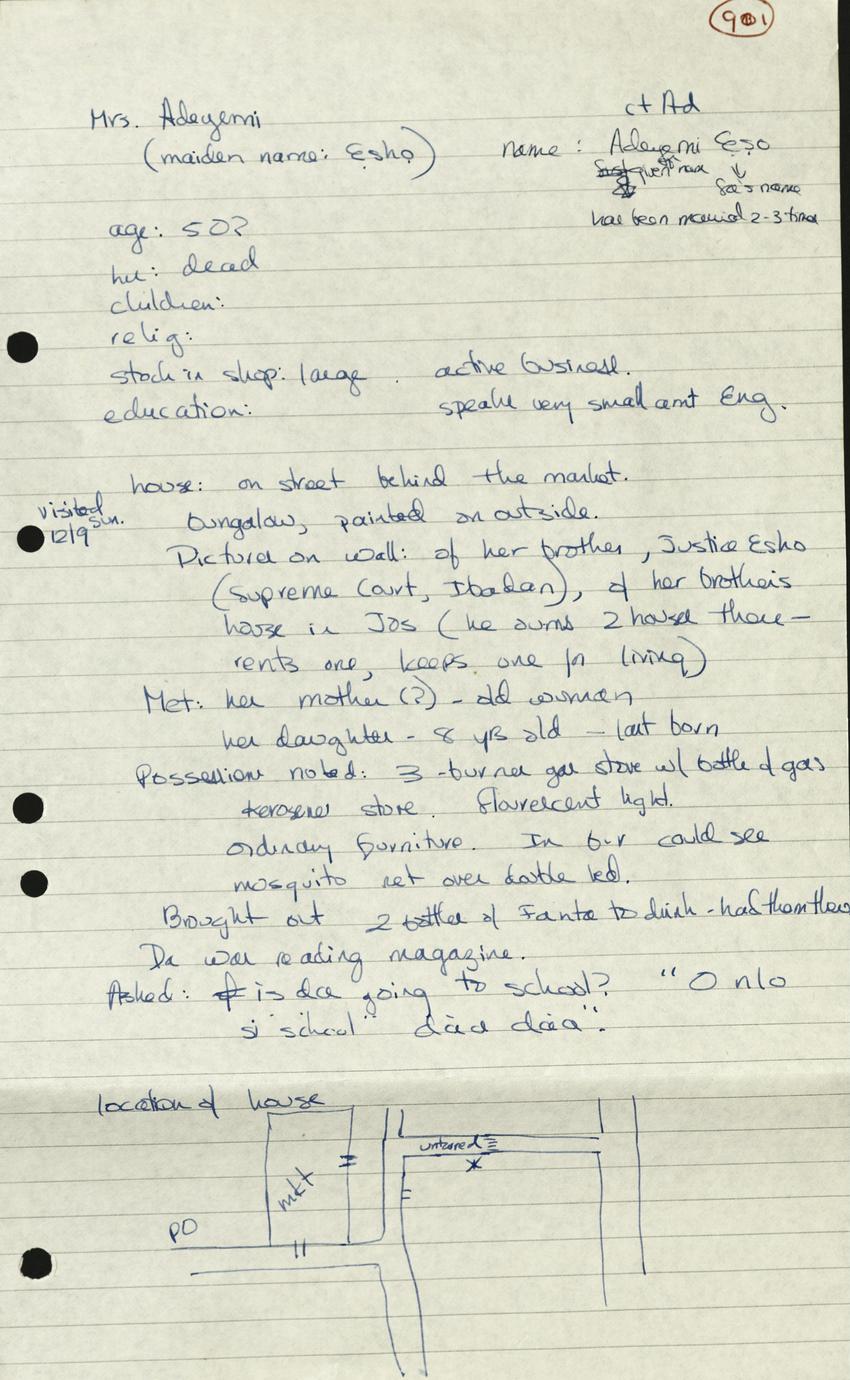 901
Mrs. Adeyemi
(maiden name: Ẹshọ)
ct Ad
name : Adeyemi Ẹṣọ
given name
fa's name
has been married 2-3 times
age: 50?
hu: dead
children:
relig:
stock in shop: large . active business.
education: speaks very small amt Eng.
visited Sun. 12/9
house: on street behind the market.
bungalow, painted on outside.
Pictures on wall: of her brother, Justice Esho
(Supreme Court, Ibadan), of her brother's
house in Jos (he owns 2 houses there –
rents one, keeps one for living)
Met: her mother (?) – old woman
her daughter – 8 yrs old – last born
Possessions noted: 3-burner gas stove w/ bottle of gas
kerosene stove. flourescent light.
ordinary furniture. In br could see
mosquito net over double bed.
Brought out 2 bottles of Fanta to drink - had them there
Da was reading magazine.
Asked: is da going to school? "O nlo
si "school" dáa dáa".
location of house
mkt
PO
untarred